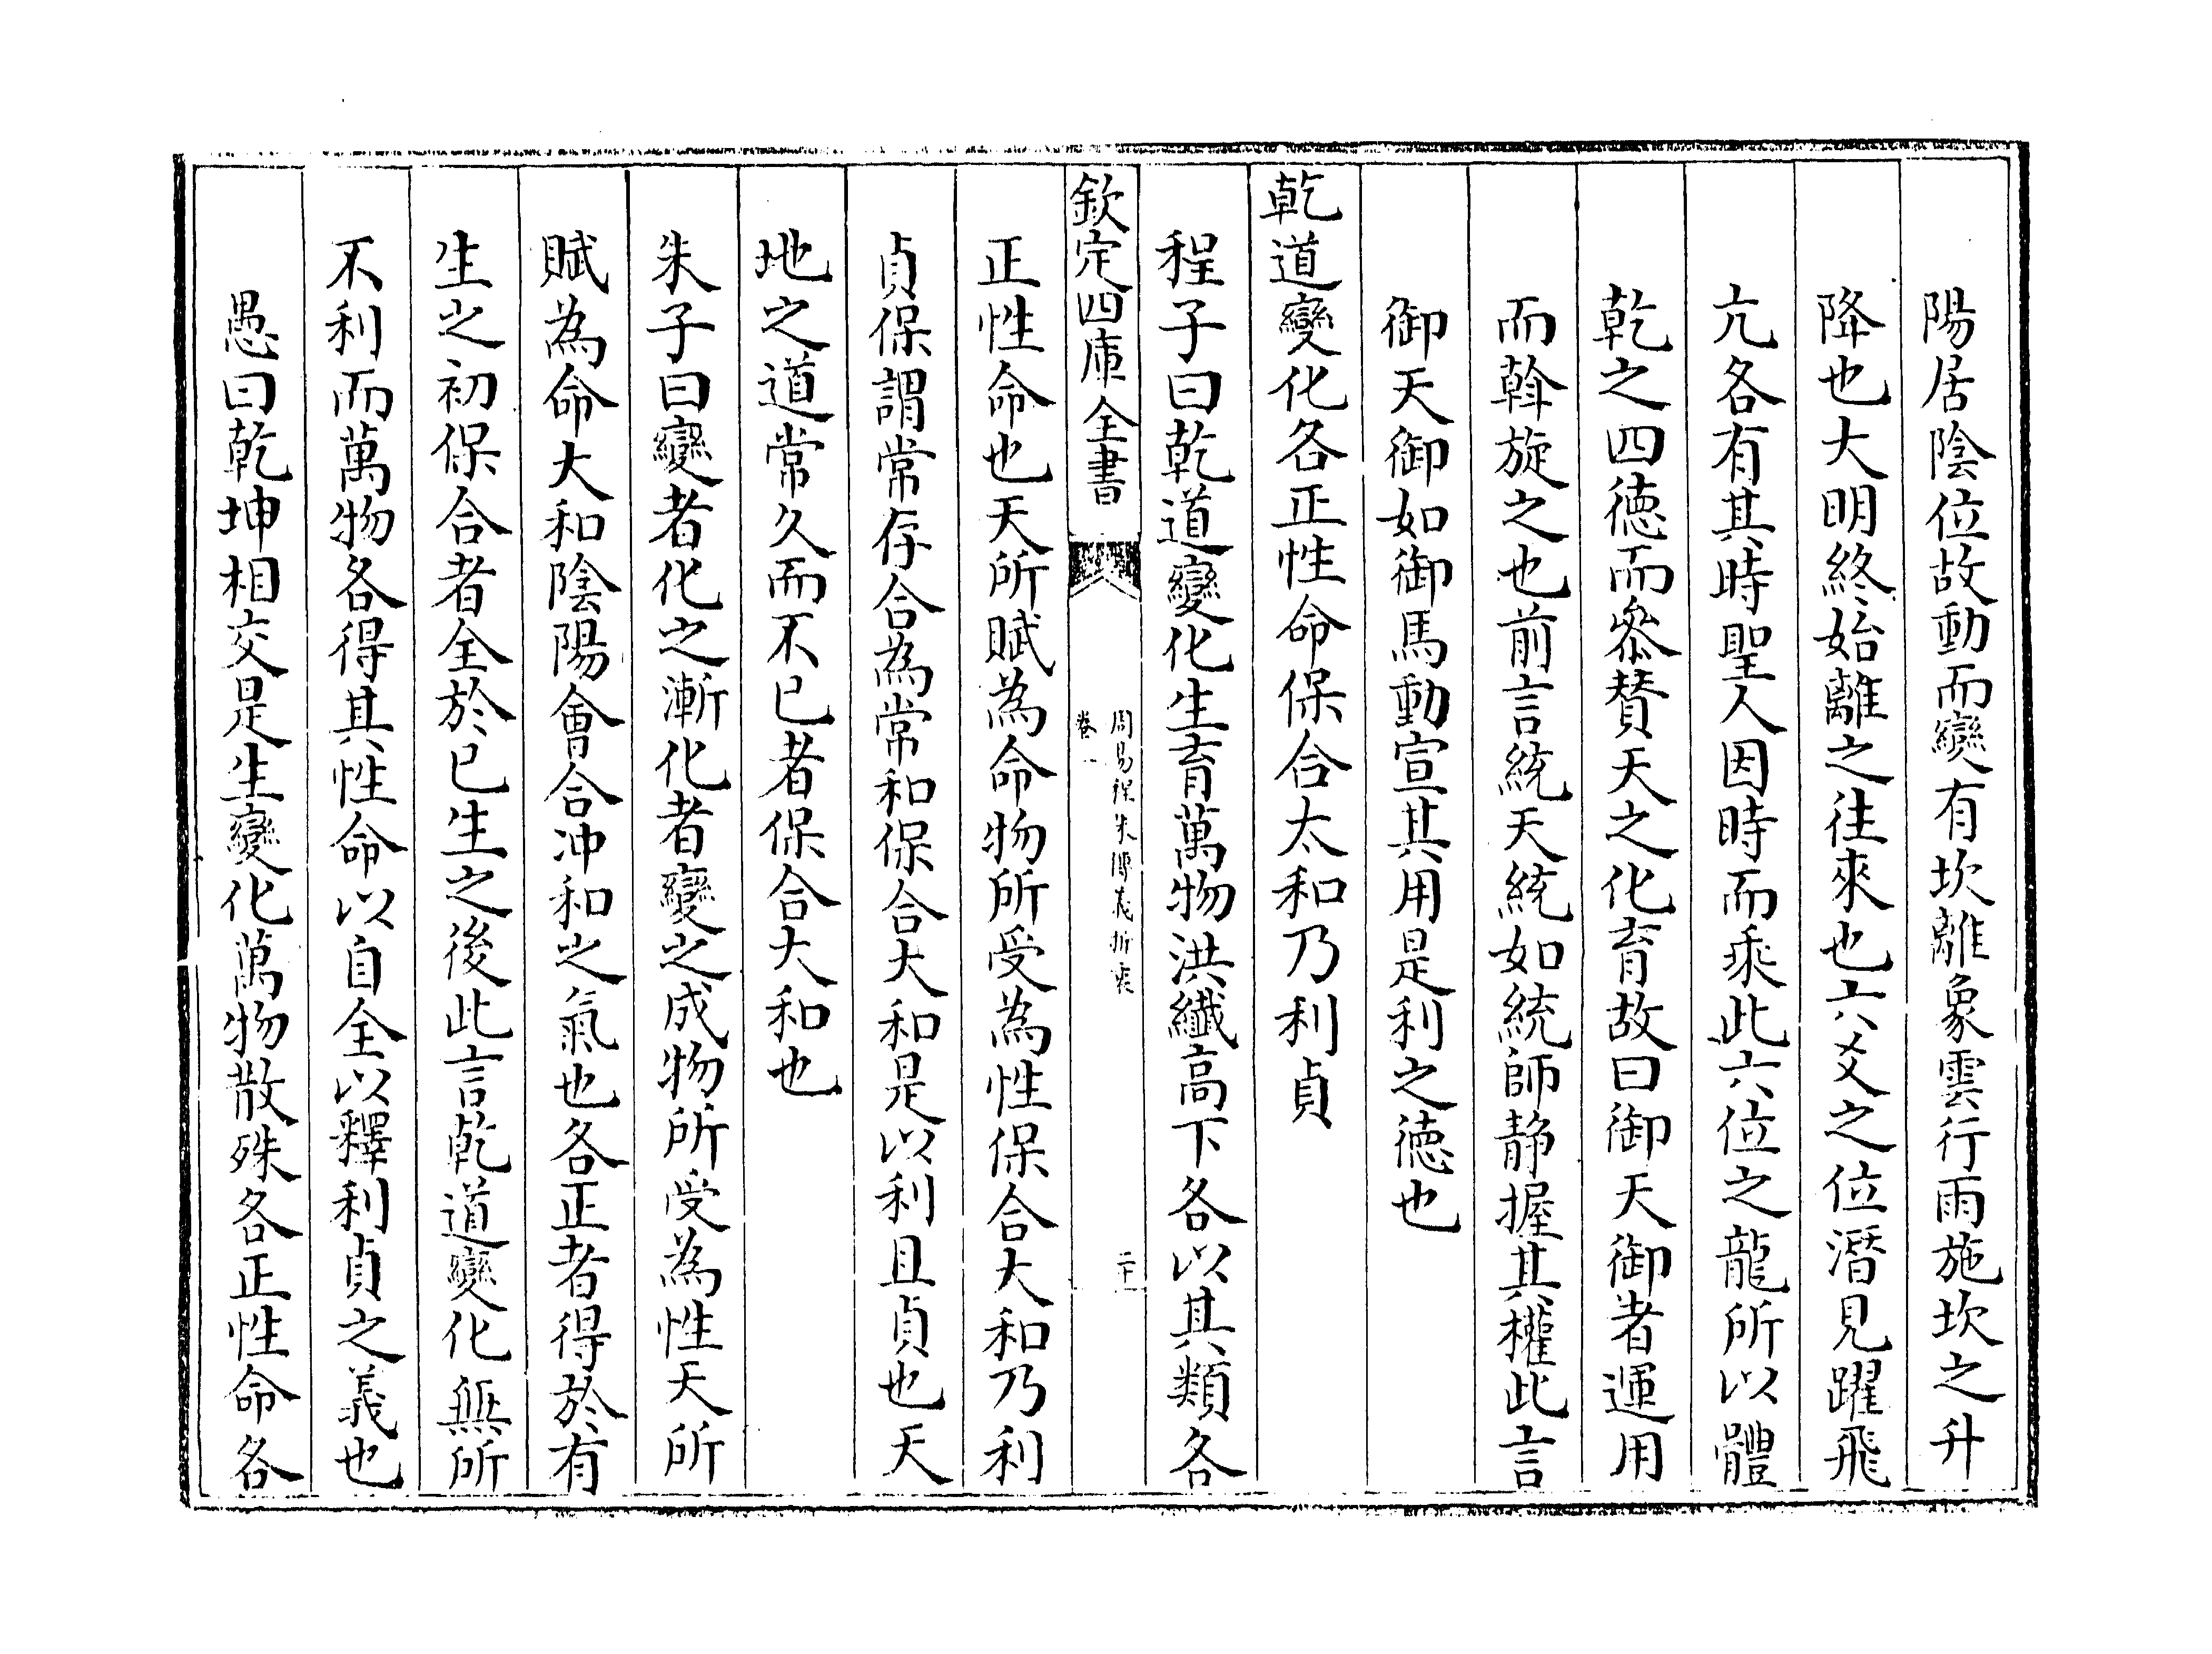 陽居陰位故動而變有坎離象雲行雨施坎之升
降也大明終始離之往來也六爻之位潛見躍飛
亢各有其時聖人因時而乘此六位之龍所以體
乾之四德而叅贊天之化育故曰御天御者運用
而斡旋之也前言統天統如統師静握其權此言
御天御如御馬動宣其用是利之德也
乾道變化各正性命保合太和乃利貞
程子曰乾道變化生育萬物洪纖高下各以其類各
欽定四庫全書
周易程朱傳義折衷
卷一
二十一
正性命也天所賦為命物所受為性保合大和乃利
貞保謂常存合為常和保合大和是以利且貞也天
地之道常久而不已者保合大和也
朱子曰變者化之漸化者變之成物所受為性天所
賦為命大和陰陽㑹合冲和之氣也各正者得於有
生之初保合者全於已生之後此言乾道變化無所
不利而萬物各得其性命以自全以釋利貞之義也
愚曰乾坤相交是生變化萬物散殊各正性命各